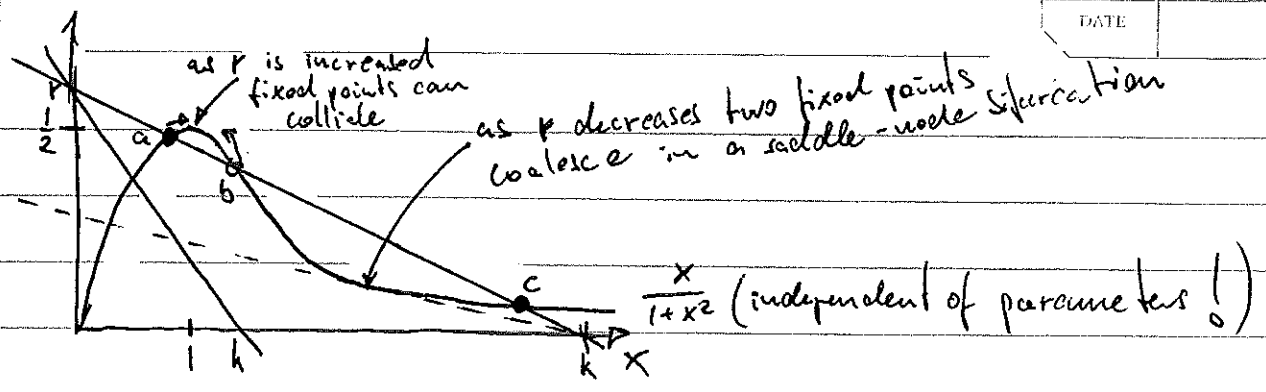 DATE
as r is increased
fixed points can
collide
as r decreases two fixed points
coalesce in a saddle-node bifurcation
r
1/2
a
b
c
x/(1+x²) (independent of parameters!)
1
k
k
x